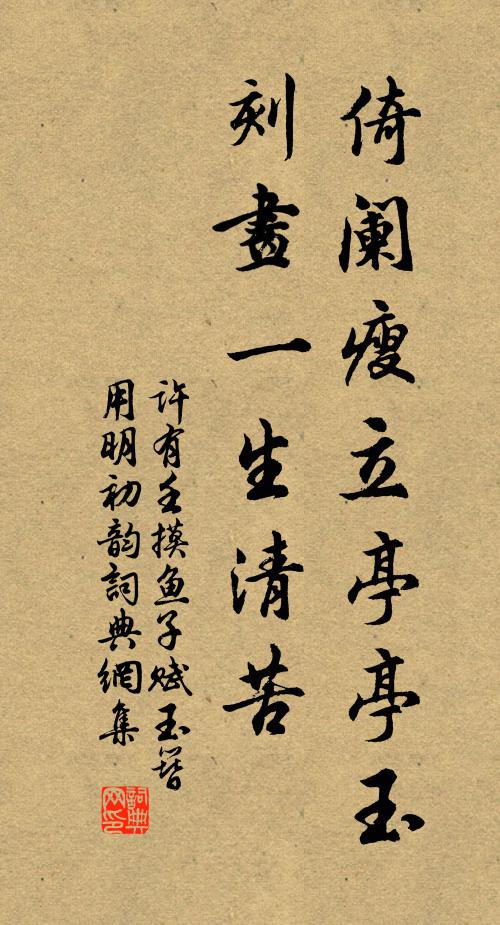 倚阑瘦立亭亭玉
刻畫一生清苦
许有壬摸鱼子赋玉簪
用明初韵詞典網集
詞典网印